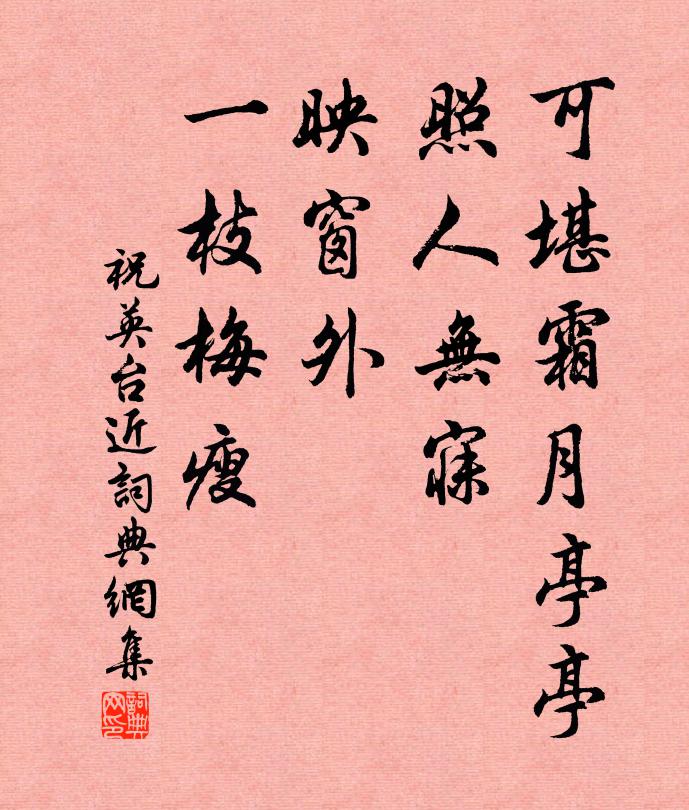 可堪霜月亭亭
照人無寐
映窗外
一枝梅瘦
祝英台近詞典網集
詞典网印